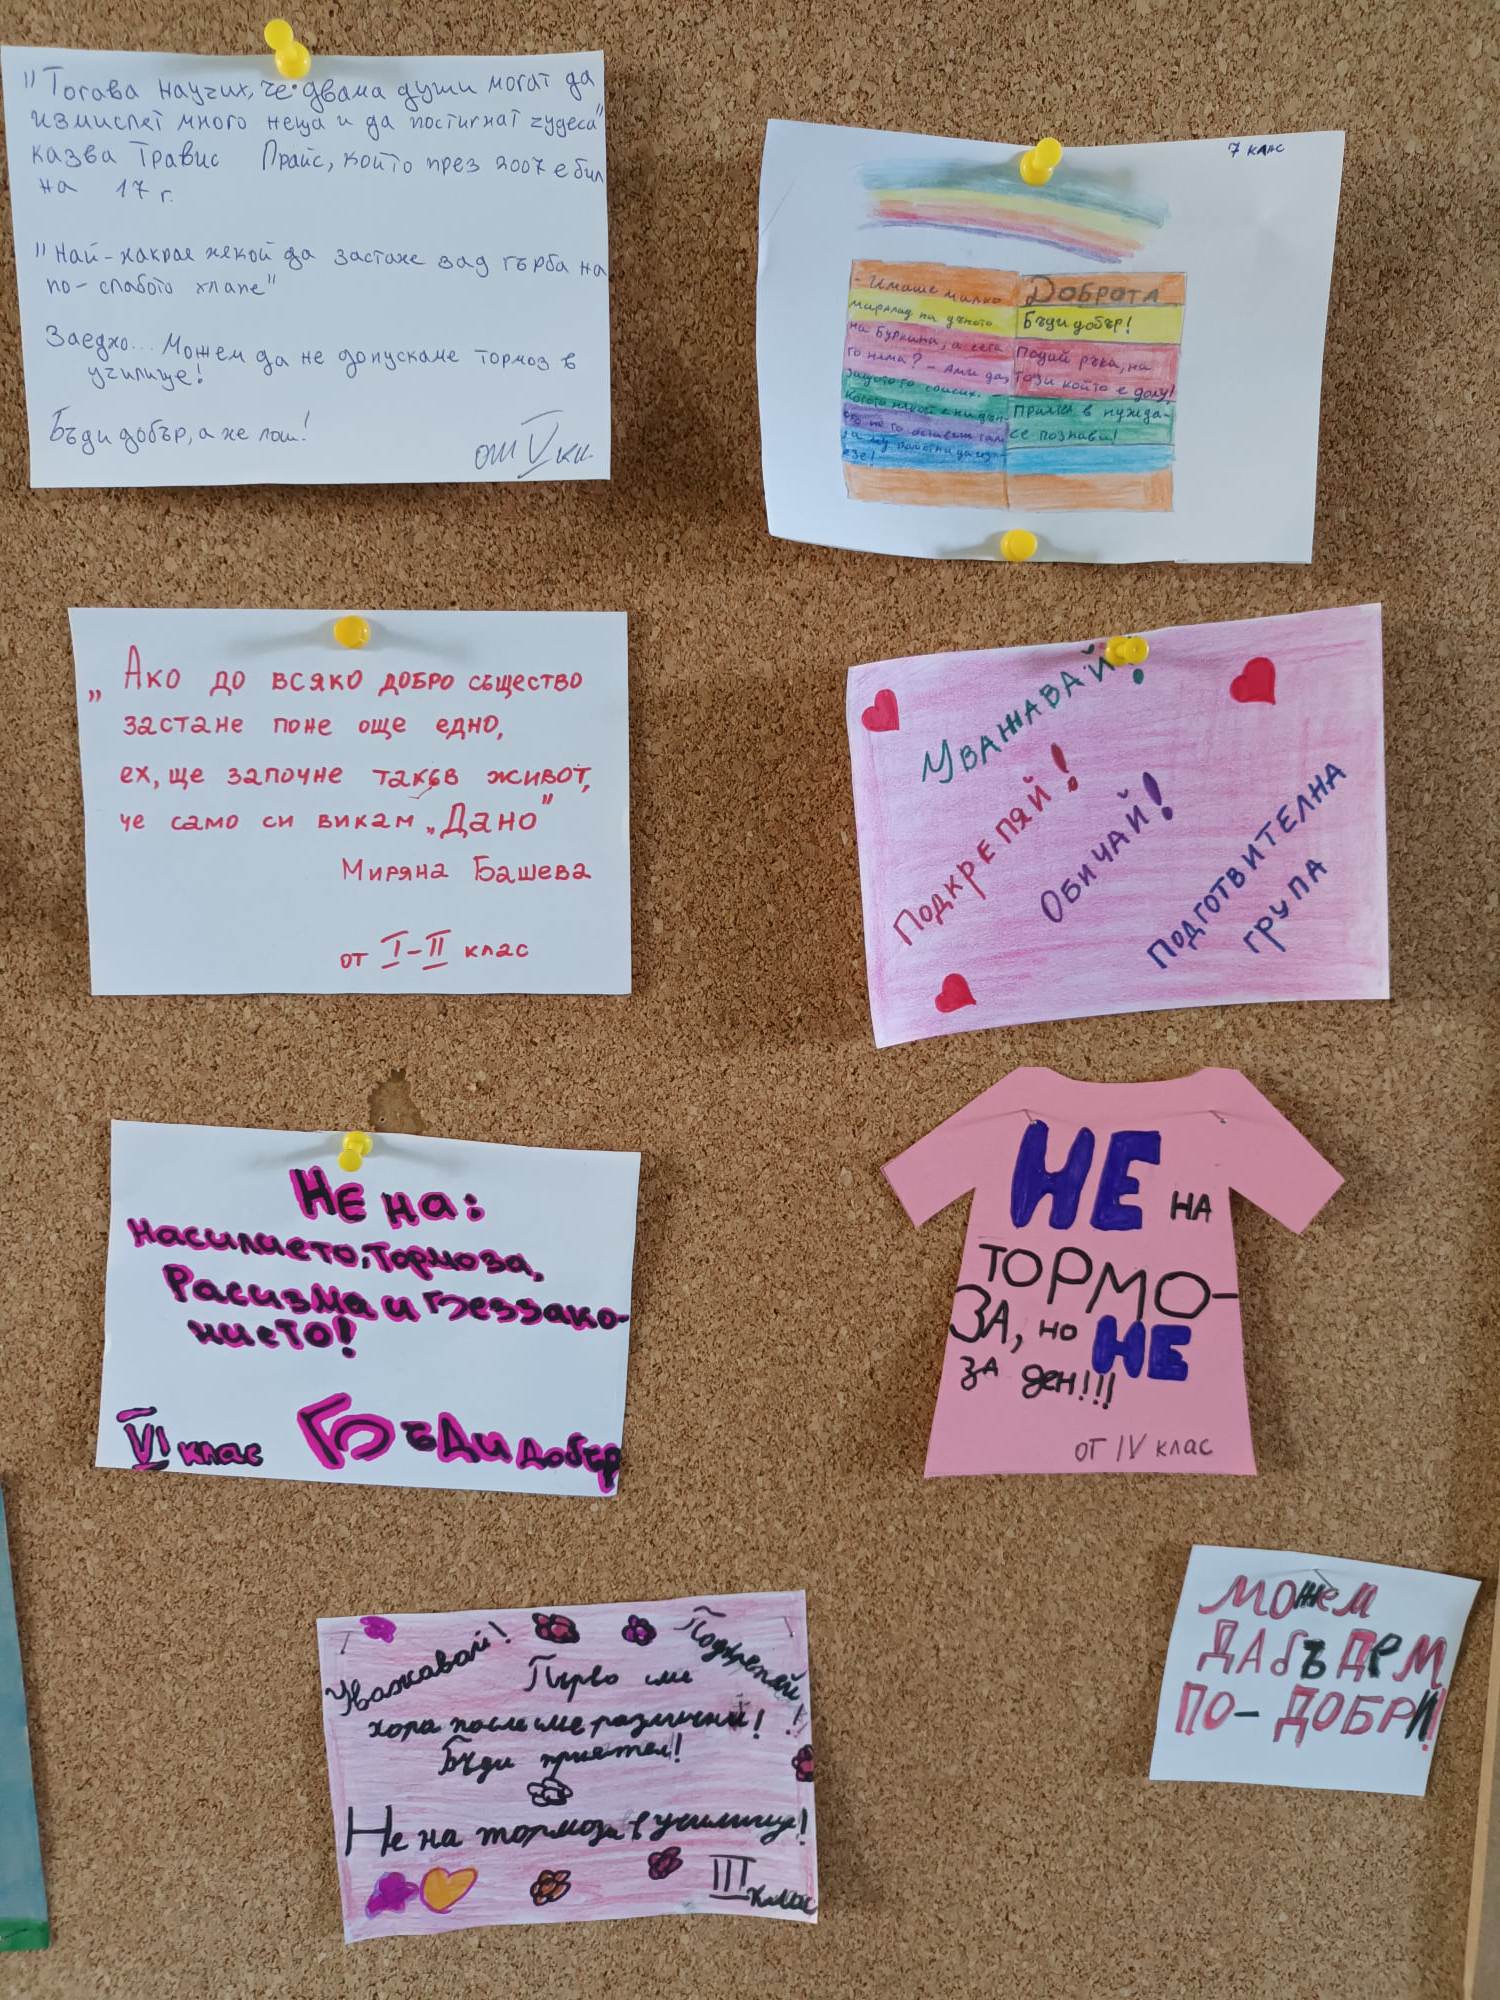 "Тогава научих, че двама души могат да
измислят много неща и да постигнат чудеса"
казва Травис Прайс, който през 2007 е бил
на 17 г.
"Най-накрая някой да застане зад гърба на
по-слабото хлапе"
Заедно... Можем да не допускаме тормоз в
училище!
Бъди добър, а не лош!
от V кл.
7 клас
- Имаше малко
мармалад на дъното
на буркана, а сега
го няма? - Ами да,
защото го спасих. -
Когато някой е на дъно-
то не го оставяш там
а му помогни да изл-
езе!
Доброта
Бъди добър!
Подай ръка, на
този който е долу!
Приятел в нужда-
се познава!
„Ако до всяко добро същество
застане поне още едно,
ех, ще започне такъв живот,
че само си викам „Дано"
Миряна Башева
от I-II клас
Уважавай!
Подкрепяй!
Обичай!
Подготвителна
група
Не на:
Насилието, Тормоза,
Расизма и Беззако-
нието!
VI клас
Бъди добър
НЕ НА
ТОРМО-
ЗА, НО НЕ
ЗА ден!!!
ОТ IV клас
Уважавай!
Подкрепяй!
Първо сме
хора после сме различни!
Бъди приятел!
Не на тормоза в училище!
III клас
МОЖем
ДА бъДем
ПО-ДОБРИ!